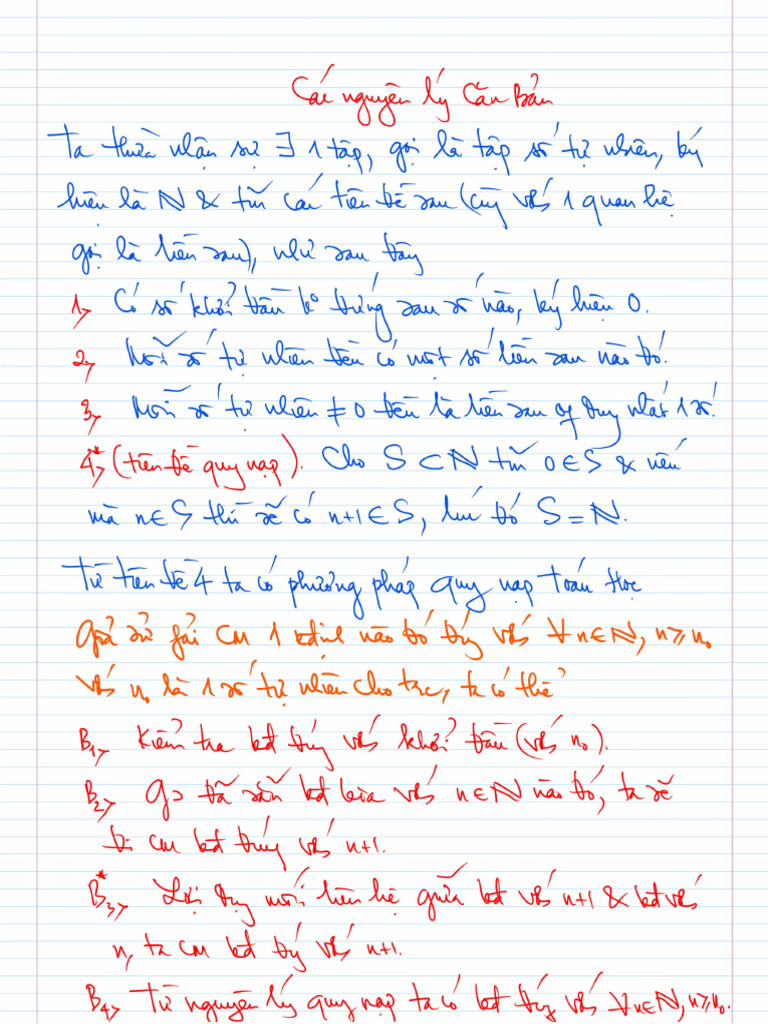 Các nguyên lý Căn Bản
Ta thừa nhận sự ∃ 1 tập, gọi là tập số tự nhiên, ký
hiệu là ℕ & t/m các tiên đề sau (cùng với 1 quan hệ
gọi là liền sau), như sau đây
1> Có số khởi đầu ko đứng sau số nào, ký hiệu 0.
2> Mỗi số tự nhiên đều có một số liền sau nào đó.
3> Mỗi số tự nhiên ≠ 0 đều là liền sau of duy nhất 1 số.
4*> (tiên đề quy nạp). Cho S ⊂ ℕ t/m 0 ∈ S & nếu
mà n ∈ S thì sẽ có n+1 ∈ S, lúc đó S = ℕ.
Từ tiên đề 4 ta có phương pháp quy nạp toán học
Giả sử fải CM 1 kđịnh nào đó đúng với ∀ n ∈ ℕ, n ⩾ n₀
với n₀ là 1 số tự nhiên cho trc, ta có thể
B1> Kiểm tra kđ đúng với khởi đầu (với n₀).
B2> Gs đã sẵn kđ với n ∈ ℕ nào đó, ta sẽ
đi CM kđ đúng với n+1.
B*3> Lợi dụng mối liên hệ giữa kđ với n+1 & kđ với
n, ta CM kđ đúng với n+1.
B4> Từ nguyên lý quy nạp ta có kđ đúng với ∀ n ∈ ℕ, n ⩾ n₀.